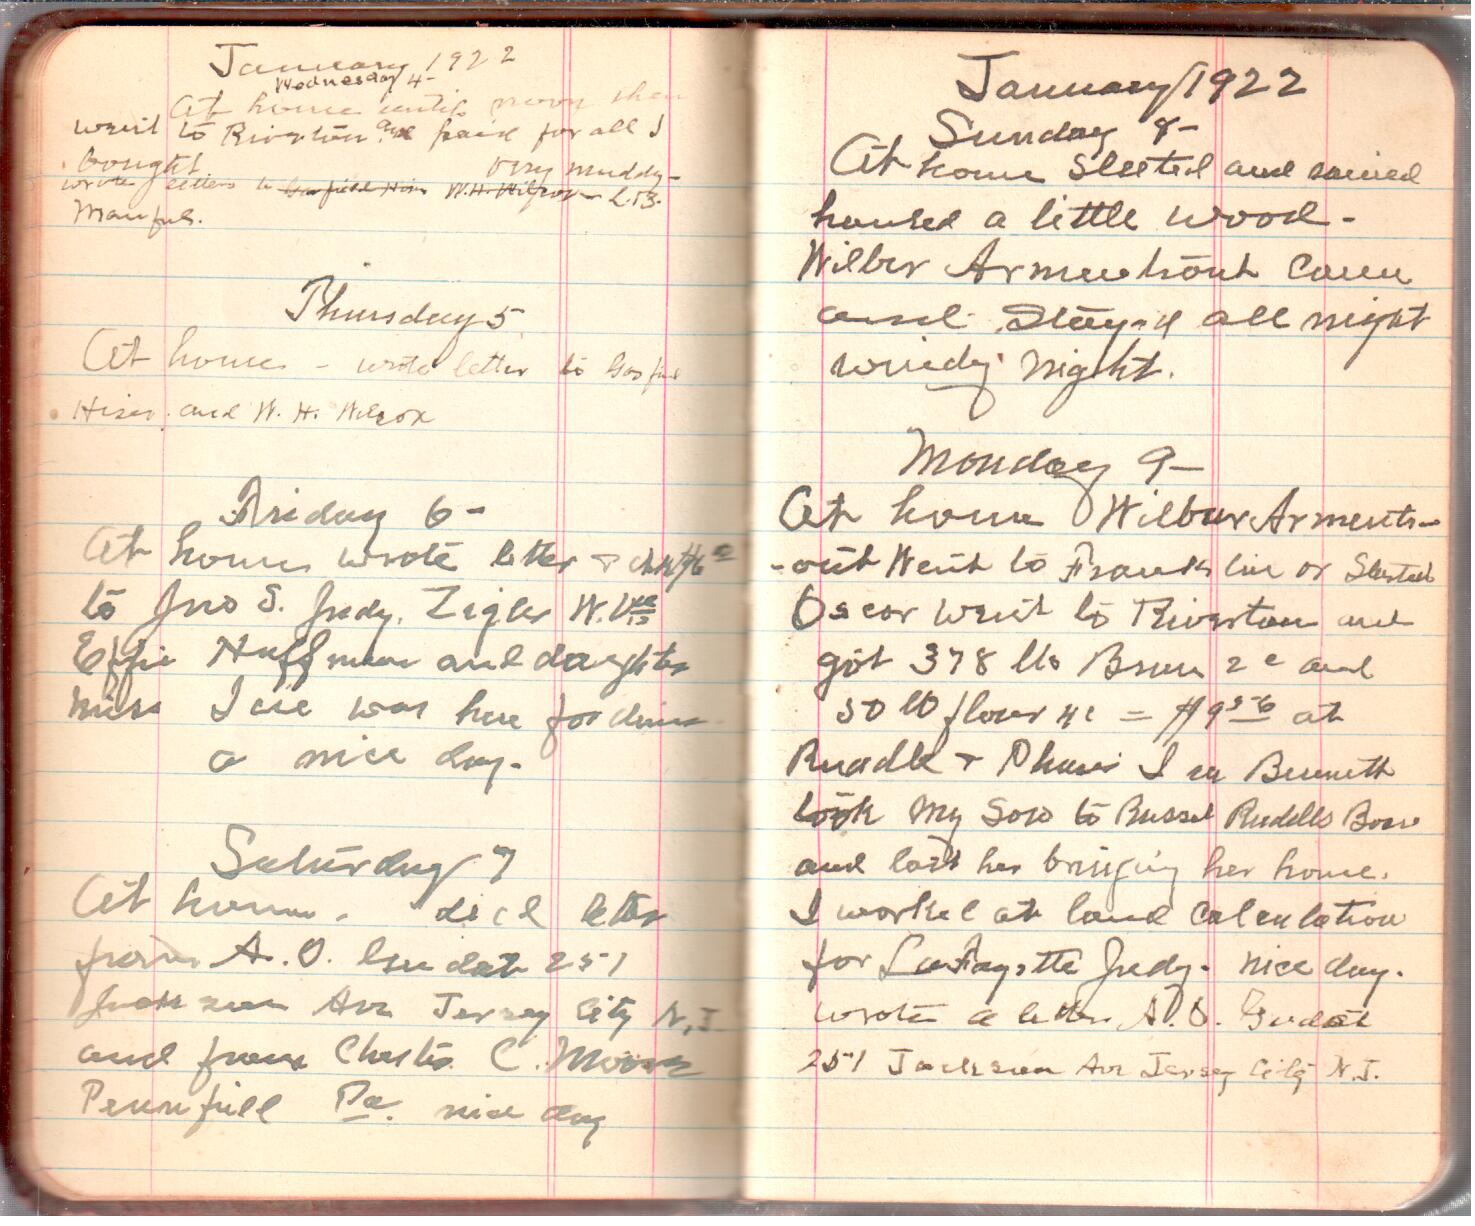 January 1922
Wednesday 4-
At home until noon then
went to Riverton and paid for all I
bought very muddy-
wrote letters to Garfield Hiser W.H. Wilcox L.B.
Thursday 5
At home - wrote letter to Garfield
Hiser and W. H. Wilcox
Friday 6-
At home wrote letter &
to Jno S. Judy, Zigler W.Va
Effie Huffman and daughter
Miss was here for dinner
a nice day-
Saturday 7
At home. letter
from A. O. Gudat 251
Jackson Ave Jersey City N.J
and from C. Moore
Pa. nice day
January 1922
Sunday 8-
At home Sleeted and rained
hauled a little wood-
Wilber Armentrout came
and Stayed all night
windy night.
Monday 9-
At home Wilbur Arments-
-out Went to Franklin or Sleeted
Oscar went to Riverton and
got 378 lbs Bran 2c and
50 lb flour 4c = $9 56 at
& I Bennett
took My Sow to Russel Ruddles Boar
and lost her bringing her home.
I worked at land calculation
for LaFayette Judy. nice day.
wrote a letter A. O. Gudat
251 Jackson Ave Jersey City N.J.